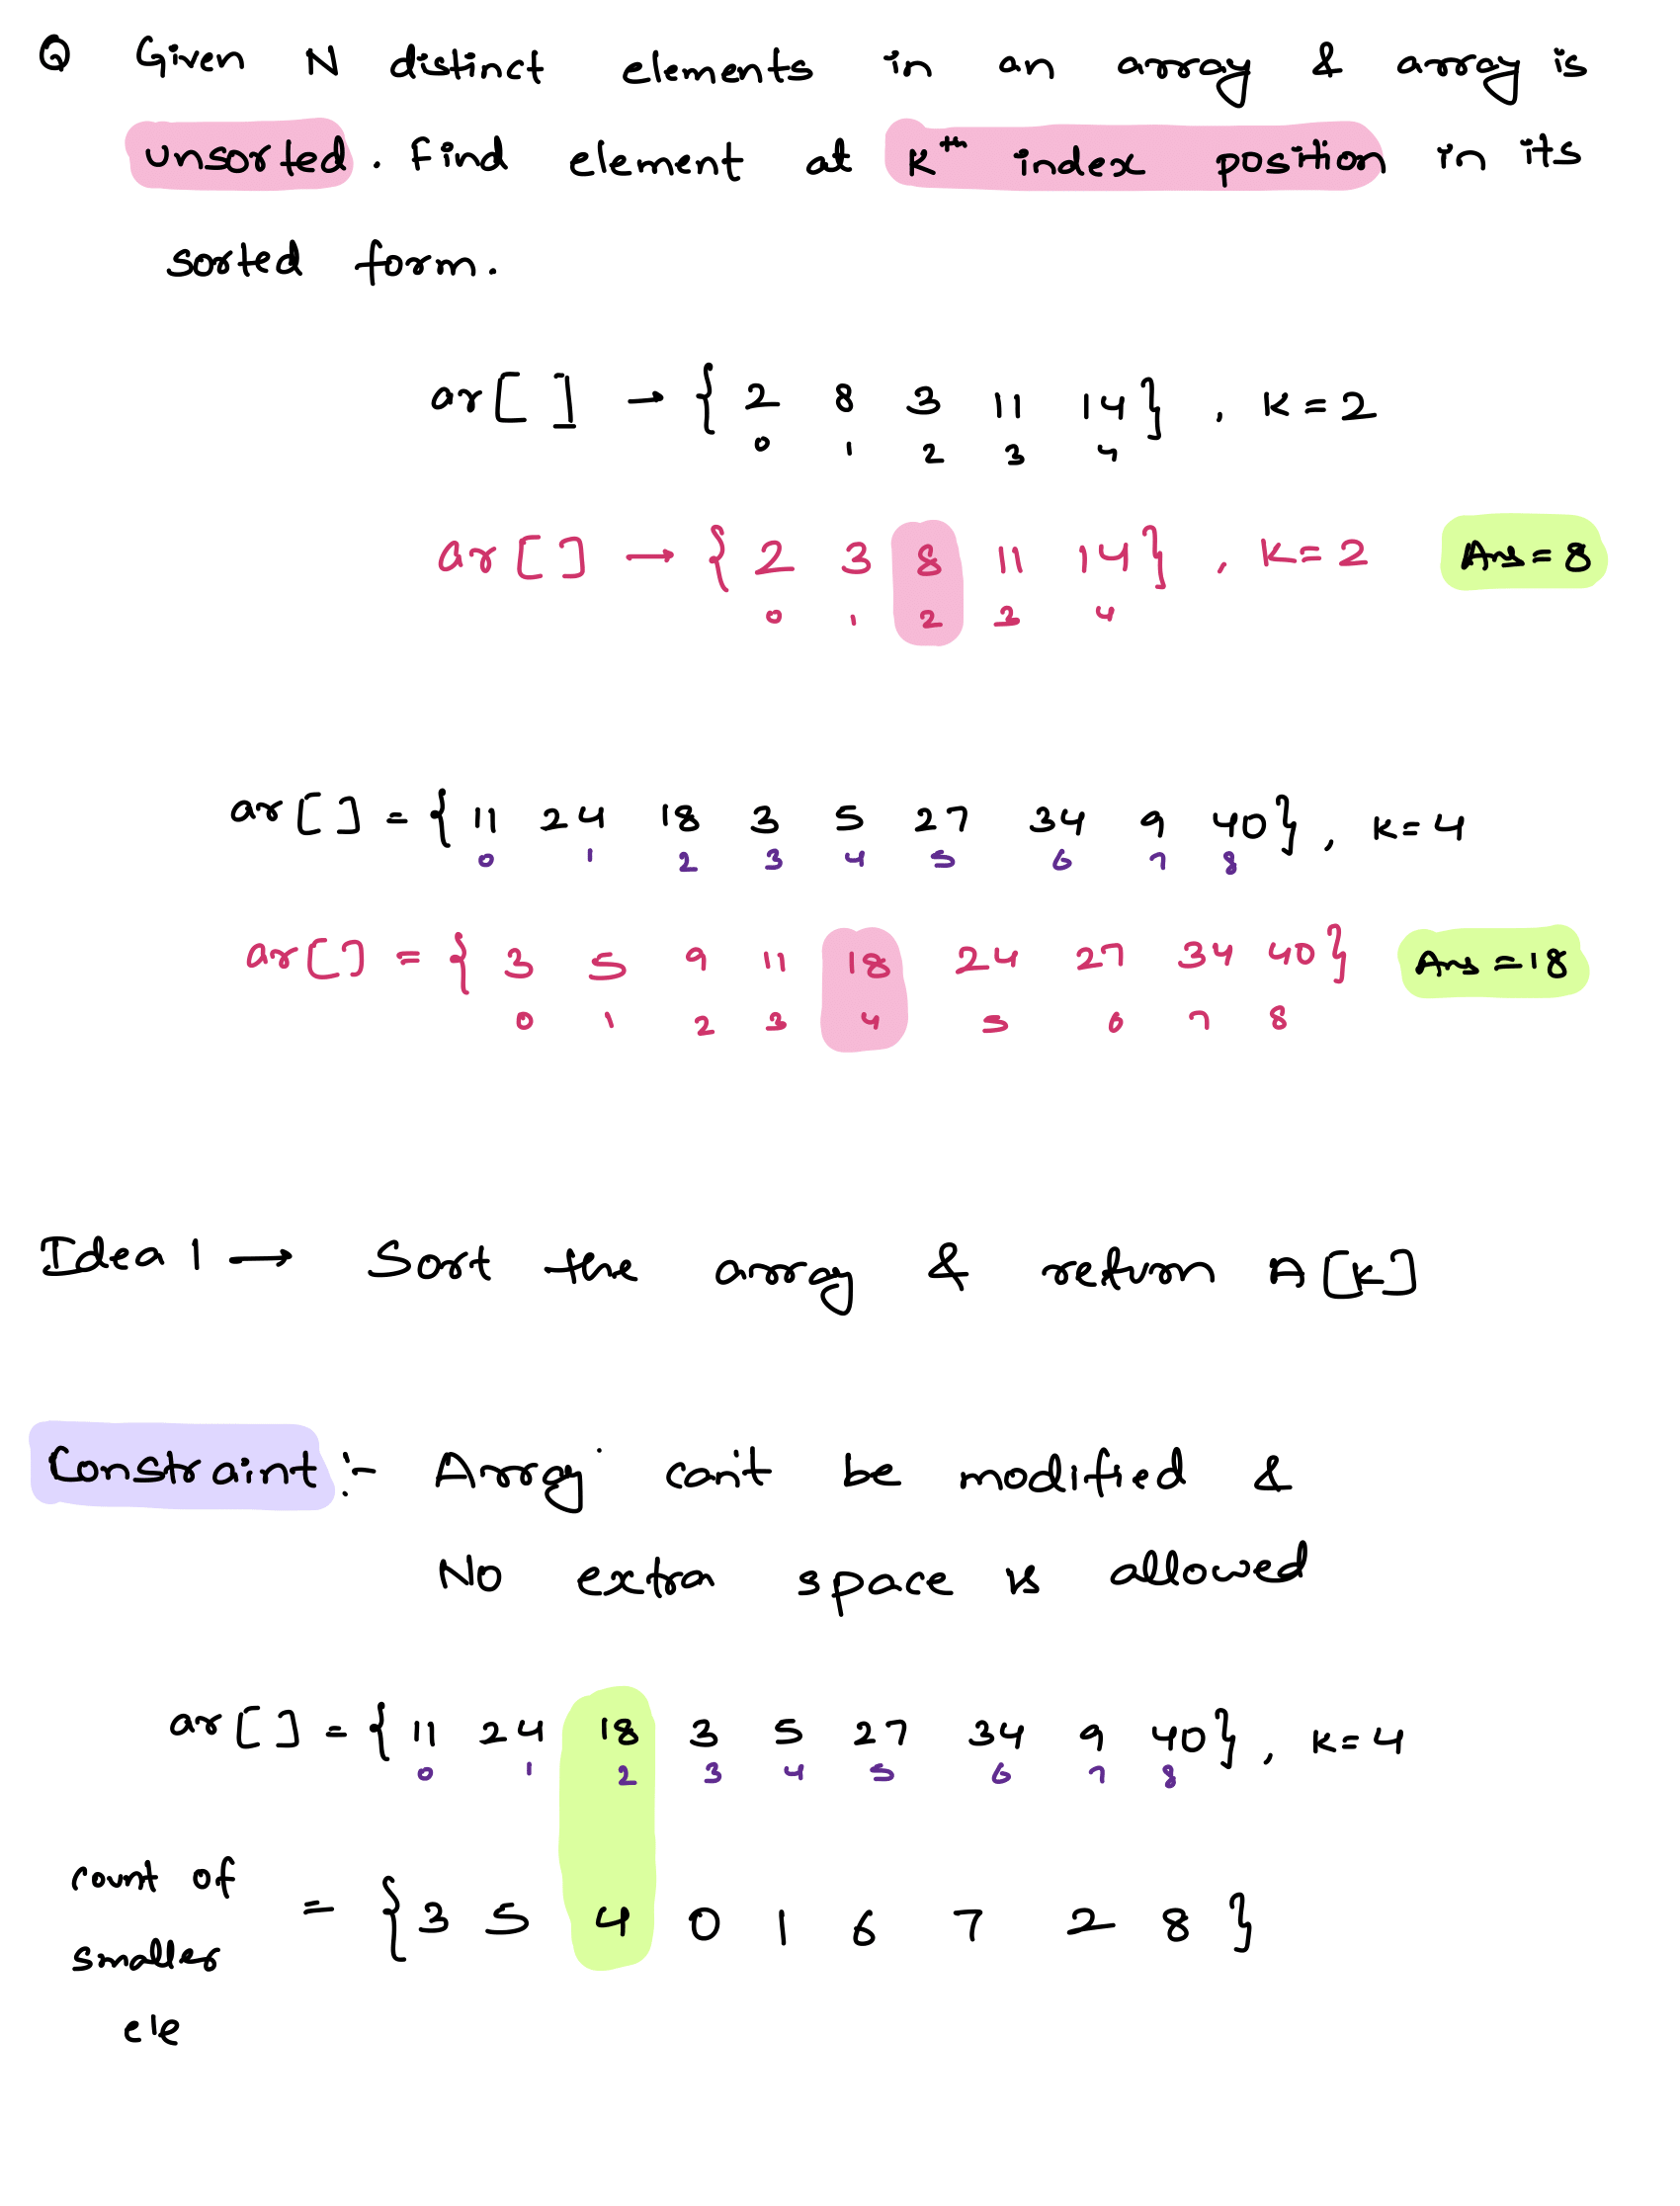 Q Given N distinct elements in an array & array is
unsorted. Find element at Kth index position in its
sorted form.
ar[ ] → { 2 8 3 11 14 } , K = 2
0 1 2 3 4
ar[ ] → { 2 3 8 11 14 } , K = 2 Ans = 8
0 1 2 3 4
ar[ ] = { 11 24 18 3 5 27 34 9 40 } , K = 4
0 1 2 3 4 5 6 7 8
ar[ ] = { 3 5 9 11 18 24 27 34 40 } Ans = 18
0 1 2 3 4 5 6 7 8
Idea 1 → Sort the array & return A[K]
Constraint :- Array can't be modified &
No extra space is allowed
ar[ ] = { 11 24 18 3 5 27 34 9 40 } , K = 4
0 1 2 3 4 5 6 7 8
count of
smaller = { 3 5 4 0 1 6 7 2 8 }
ele